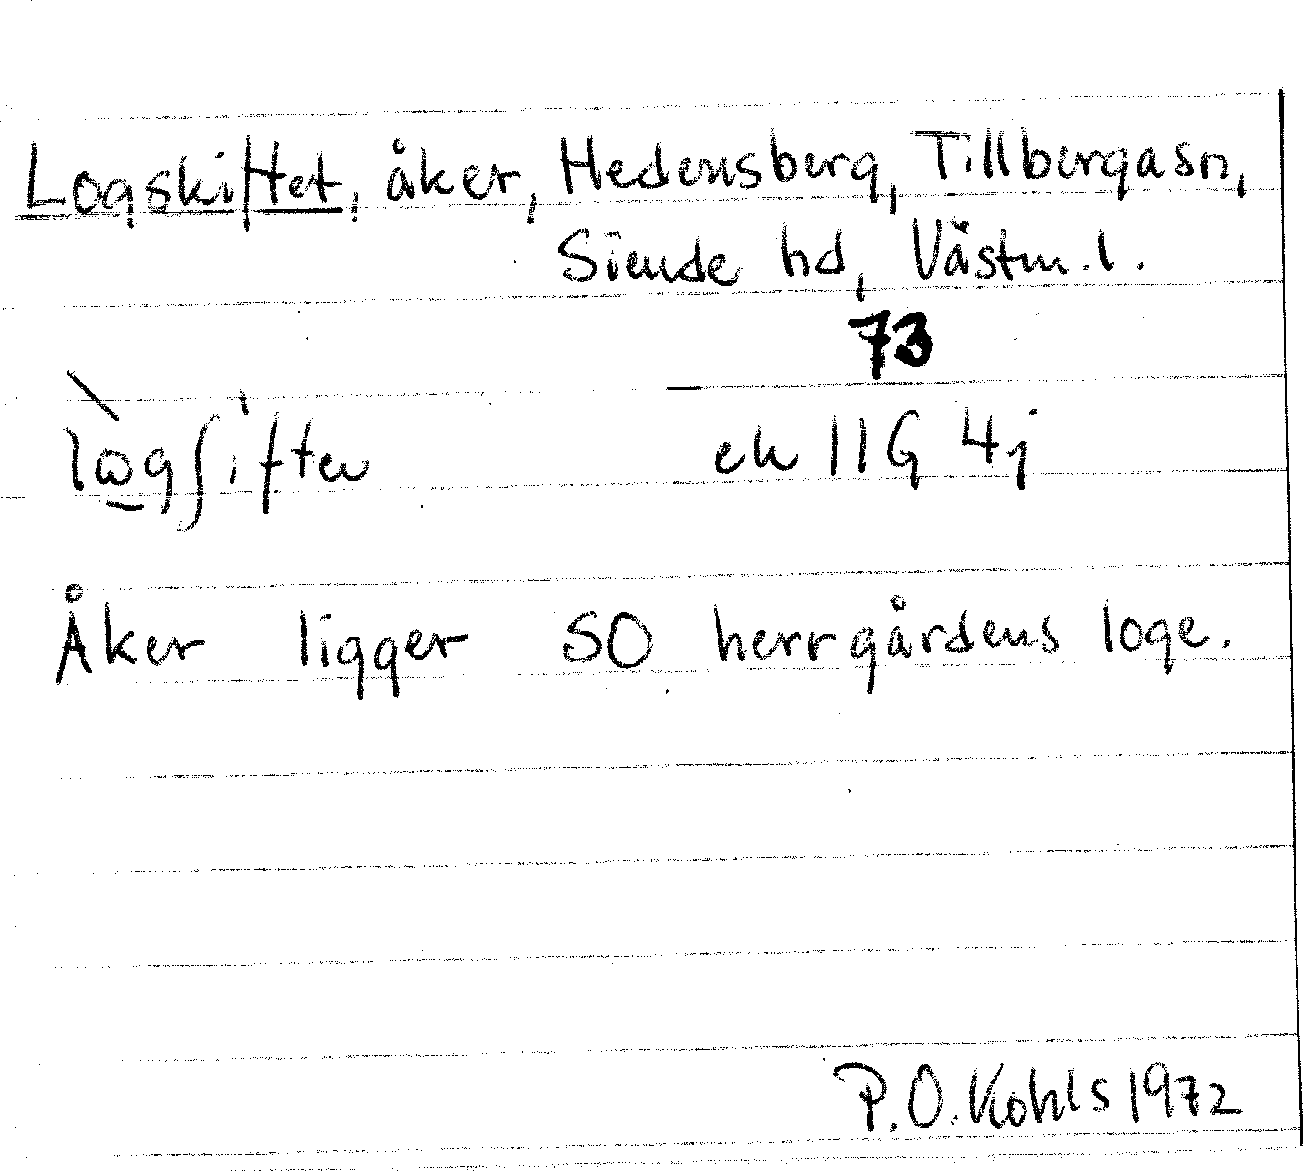 Logskiftet, åker, Hedensberg, Tillbergasn,
Siende hd, Västm. l.
73
lo̱gʃiften ek 11G 4j
Åker ligger SO herrgårdens loge.
P.O. Kohls 1972